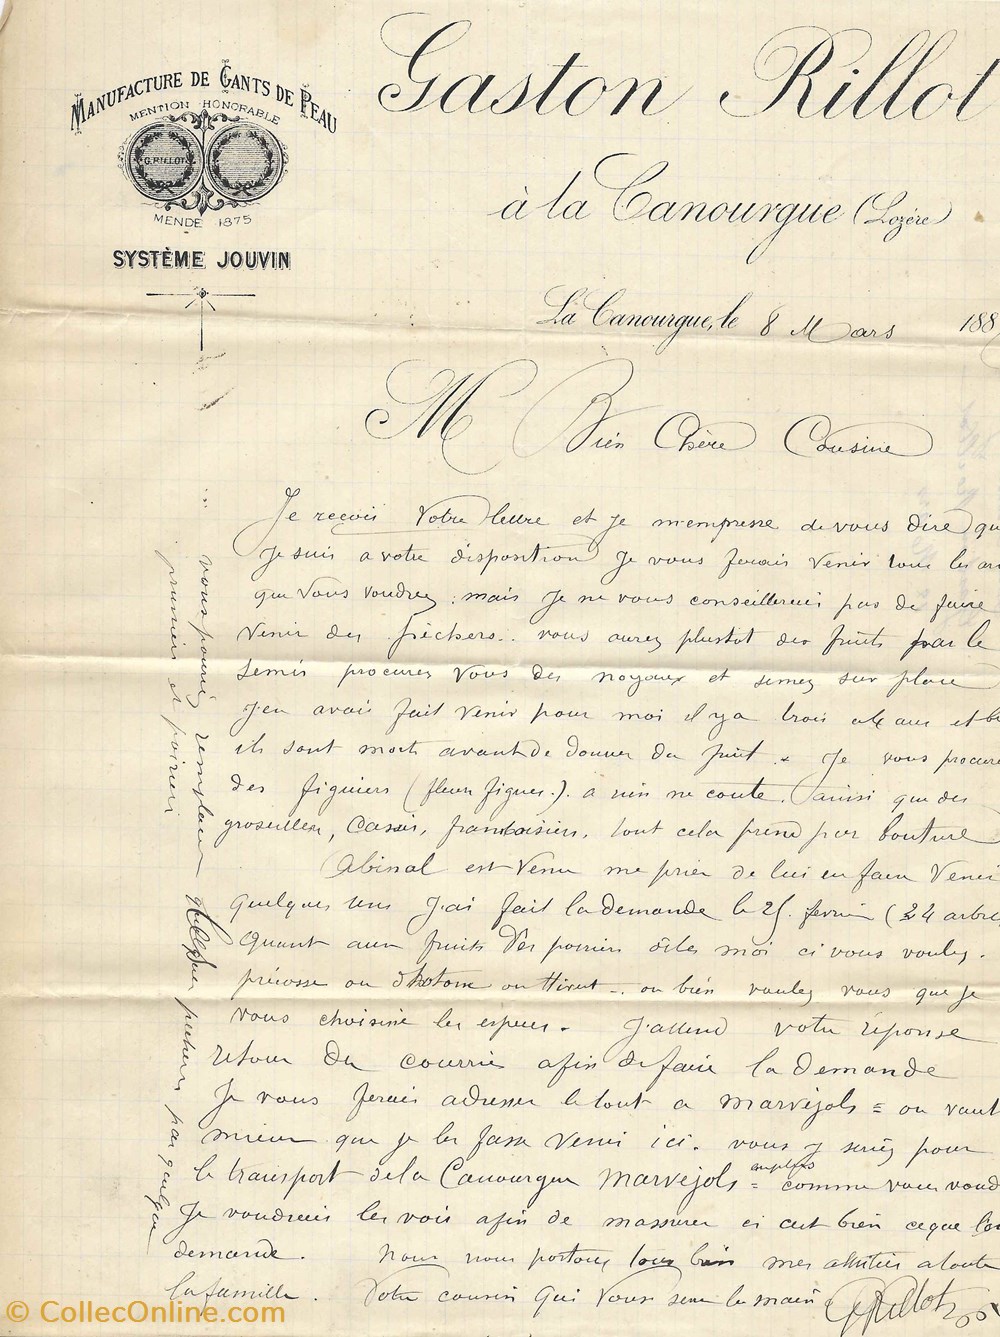 Manufacture de Gants de Peau
Mention Honorable
G. Rillot
Mende 1875
Système Jouvin
Gaston Rillot
à la Canourgue (Lozére)
La Canourgue, le 8 Mars 188
M Bien Chère Cousine
Je reçois votre lettre et je m'empresse de vous dire que
Je suis a votre disposition Je vous ferais venir tous les ar
que vous voudrez, mais Je ne vous conseillerais pas de faire
venir des pèchers.. vous aurez plustot des fruits par le
semis procurez vous des noyaux et semez sur place
J'en avais fait venir pour moi il y a trois ans et
ils sont morts avant de donner du fruit. Je vous procure
des figuiers (fleurs figues.) a rien ne coute, ainsi que des
groseillers, Cassis, framboisiers, tout cela prend par bouture
Abinal est venu me prier de lui en faire venir
quelques uns J'ai fait la demande le 25 fevrier (24 arbre
Quant aux fruits des poiriers dites moi ci vous voulez.
précosse ou d'hotone ou Hivert .. ou bien voulez vous que je
vous choisisse les especes. J'attend votre réponse
retour du courrier afin de faire la demande
Je vous ferais adresser le tout a Marvejols = ou vaut
mieux que je les fasse venir ici. vous seriez pour
le transport de la Canourgue Marvejols = comme vous voud
Je voudrais les vois afin de massurer ci cest bien ceque l'on
demande. Nous nous portons tous bien mes amitiés a toute
la famille. Votre cousin qui vous serre la main GRillot
vous pourriez remplacer quelques pechers par quelques
pruniers et poiriers
© CollecOnline.com